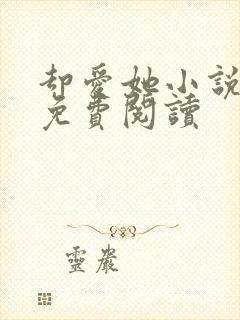 却愛她小説
免費閱讀
靈巖